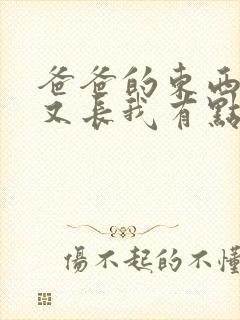 爸爸的東西
又長我有點
傷不起的不懂